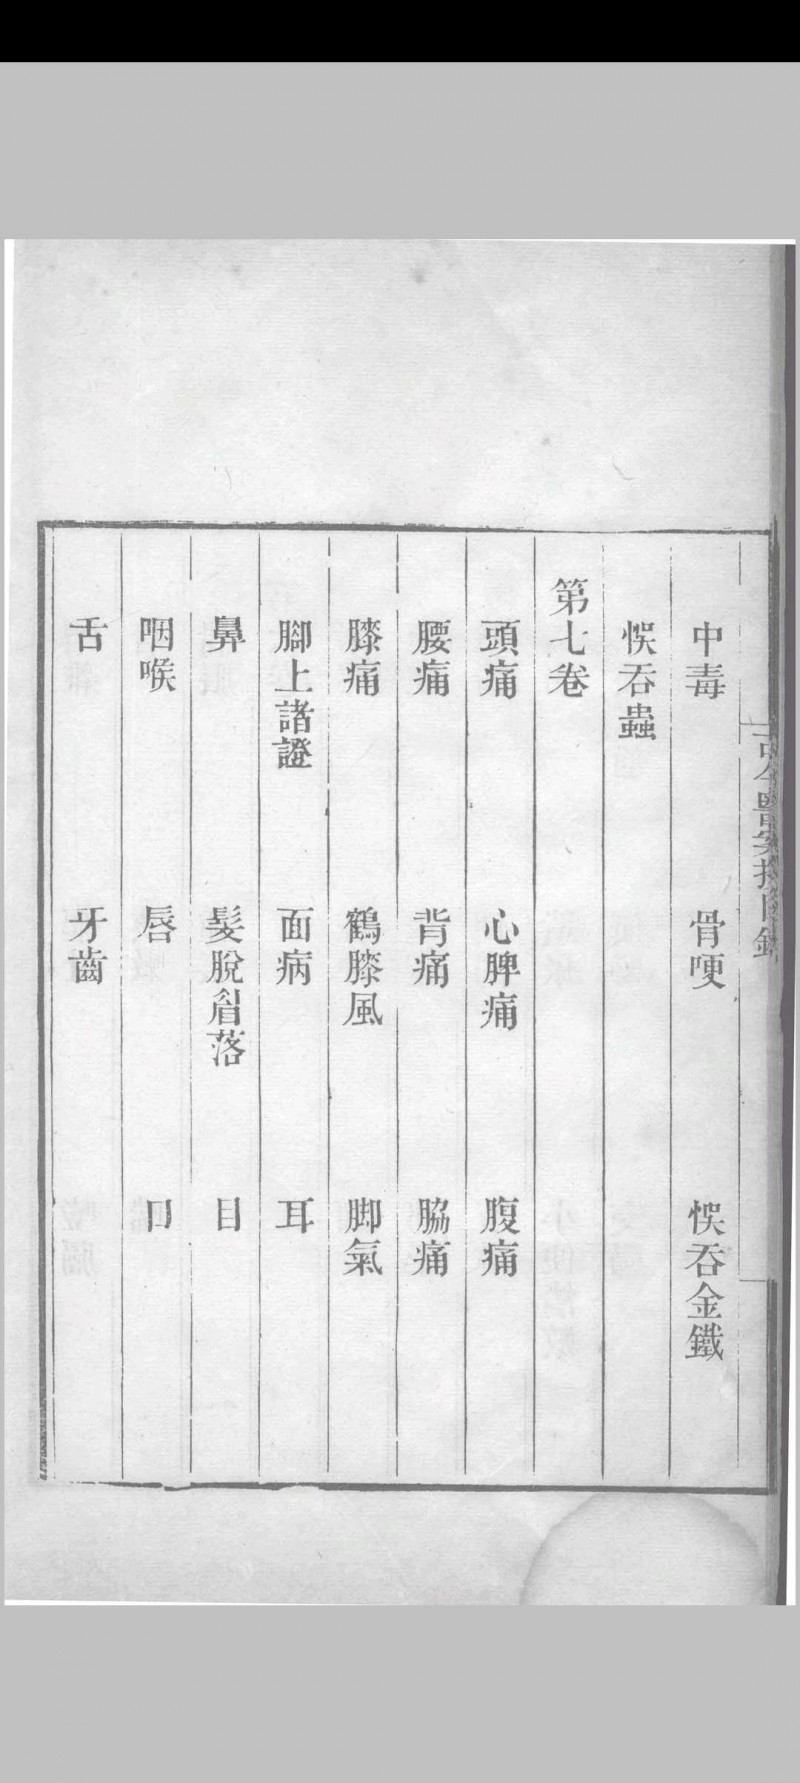 古今醫案按目錄
中毒　骨哽　悞吞金鐵
悞吞蟲
第七卷
頭痛　心脾痛　腹痛
腰痛　背痛　脇痛
膝痛　鶴膝風　脚氣
腳上諸證　面病　耳
鼻　髮脫眉落　目
咽喉　唇　口
舌　牙齒